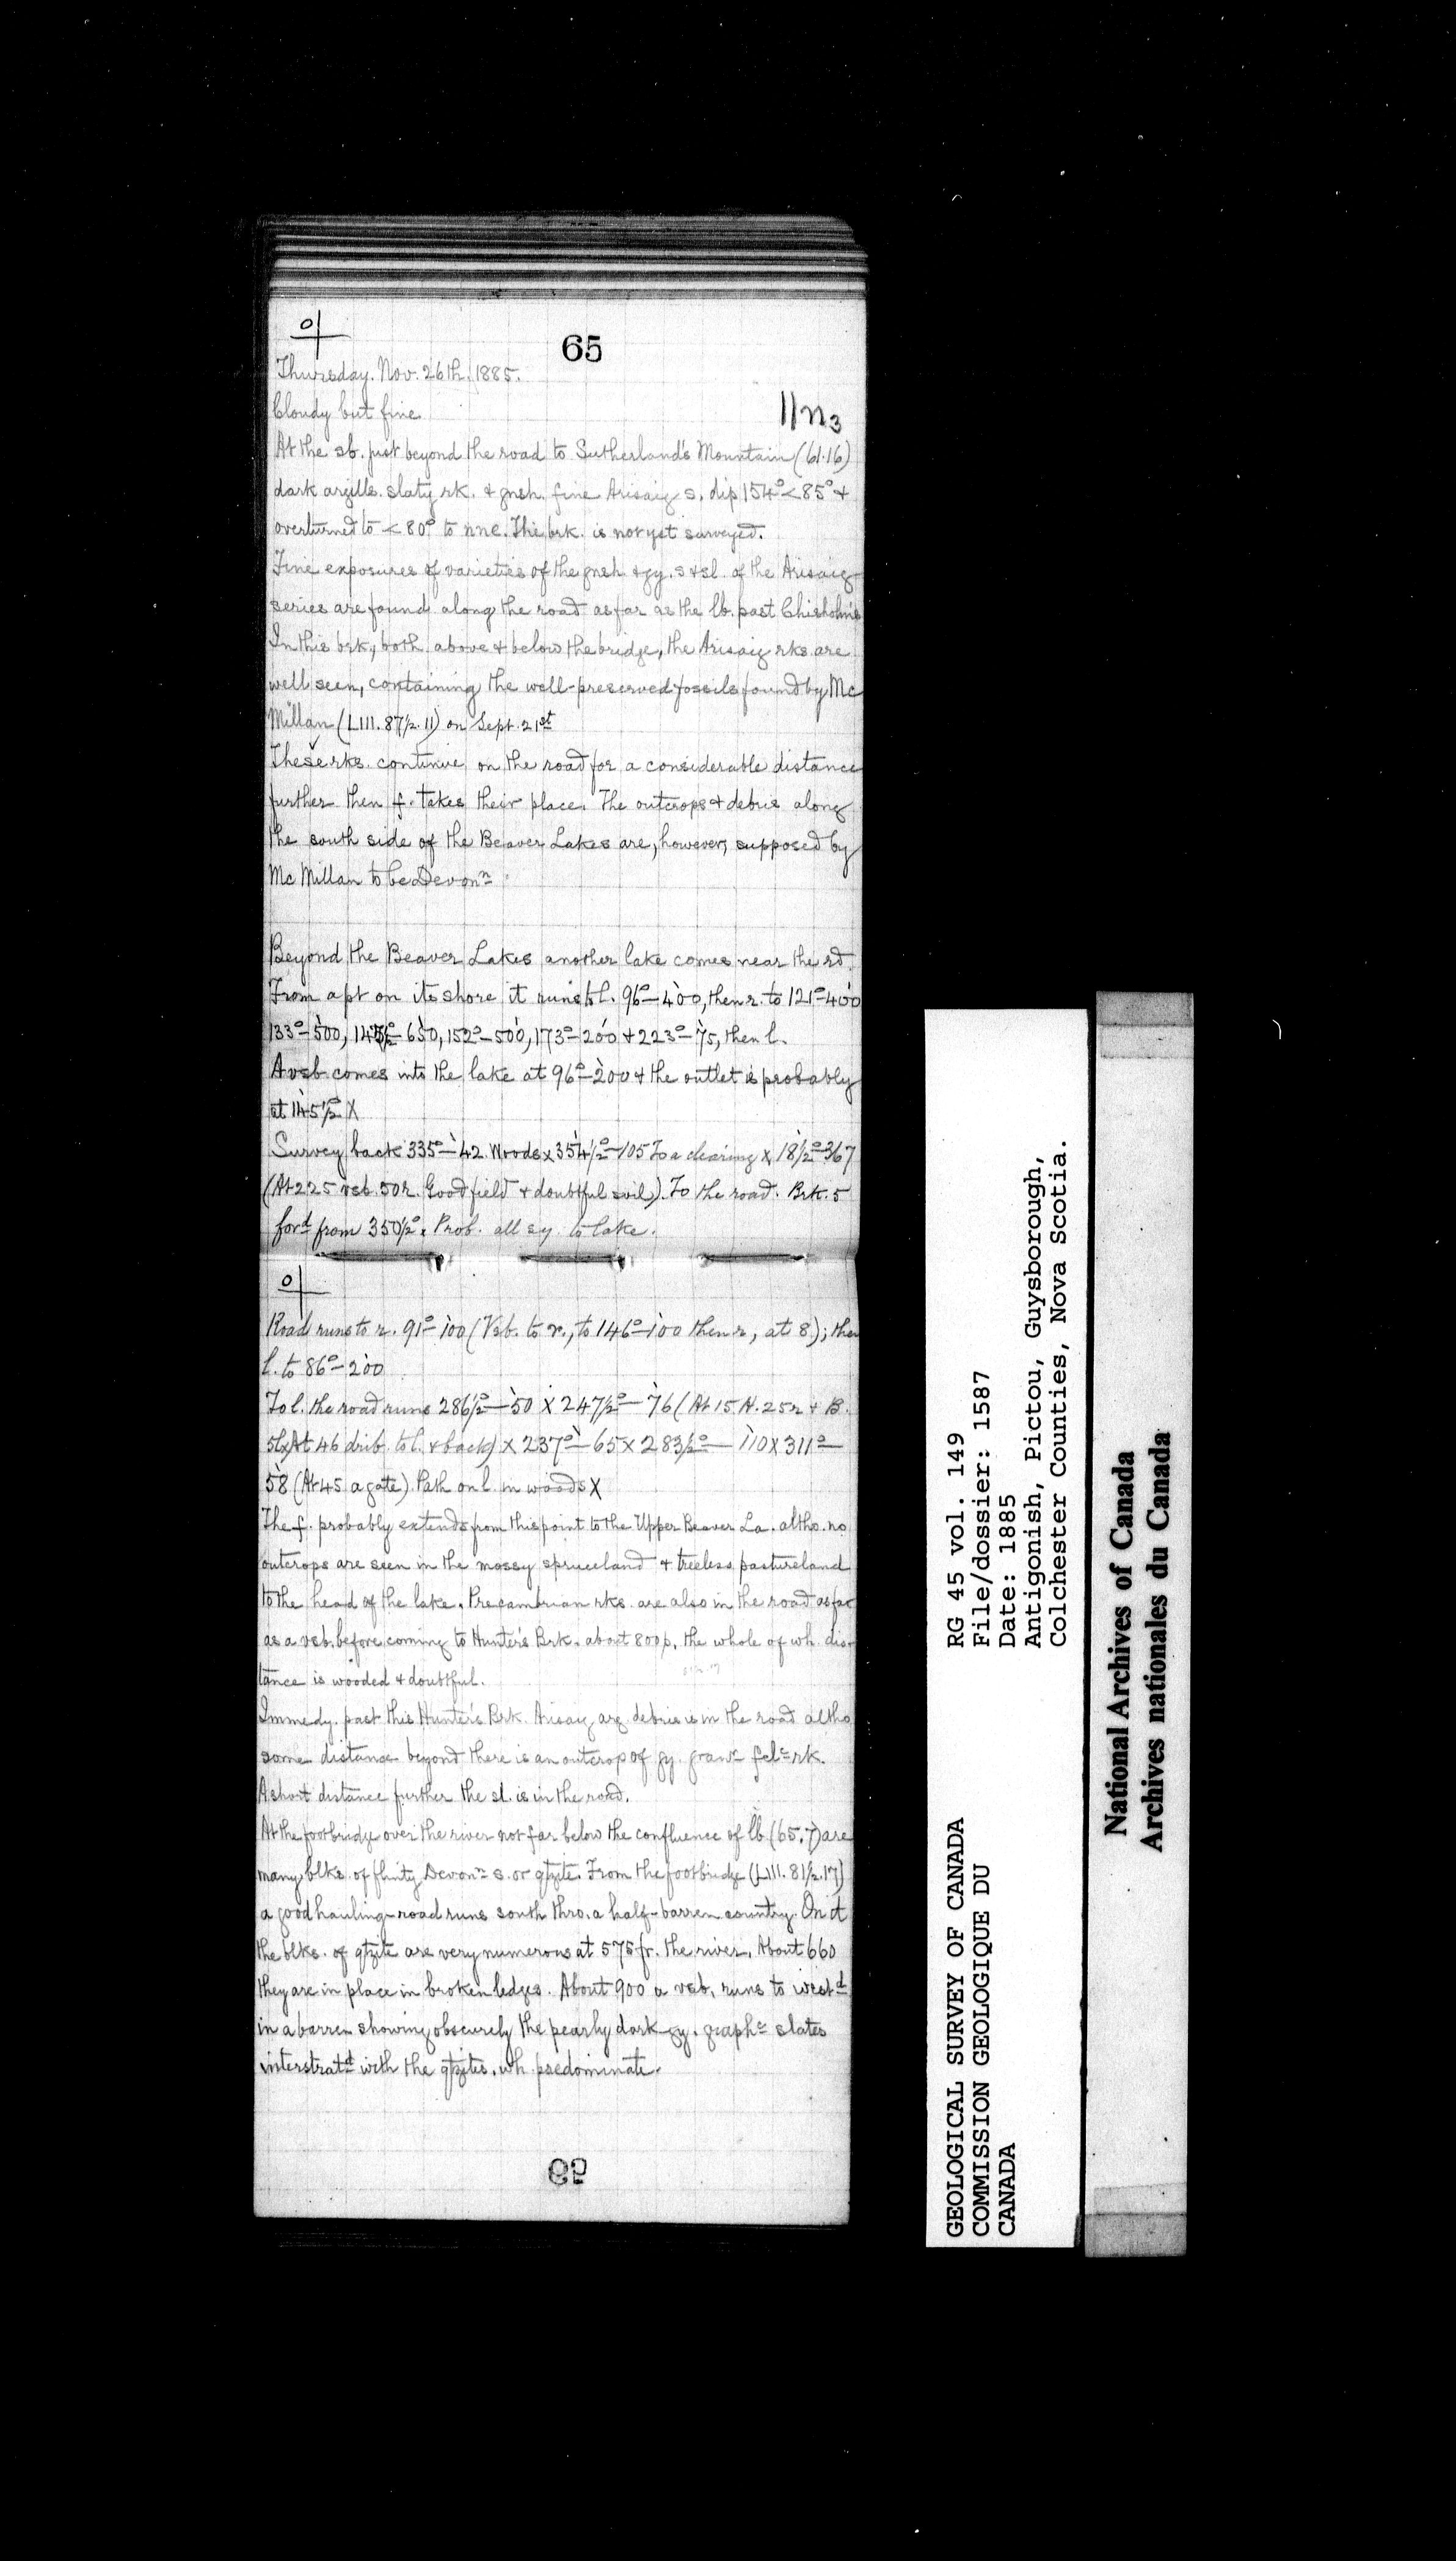 65
Thursday. Nov. 26th. 1885.
Cloudy but fine.
11n3
At the sb. just beyond the road to Sutherland's Mountain (61.16)
dark argills. slaty rk. & gnsh. fine Arisaig s. dip 154°<85° &
overturned to <80° to nne. This brk. is not yet surveyed.
Fine exposures of varieties of the gnsh. & gy. s & sl. of the Arisaig
series are found along the road as far as the lb. past Chisholm's
In this brk, both above & below the bridge, the Arisaig rks are
well seen, containing the well-preserved fossils found by Mc
Millan (L111. 87½. 11) on Sept. 21st
These rks. continue on the road for a considerable distance
further then f. takes their place. The outcrops & debris along
the south side of the Beaver Lakes are, however, supposed by
Mc Millan to be Devonn
Beyond the Beaver Lakes another lake comes near the rd.
From a pt on its shore it runs to l. 96°-400, then r. to 121°-400
133°-500, -650, 152°-500, 173°-200 & 223°-75, then l.
A vsb comes into the lake at 96°-200 & the outlet is probably
at 145½° X
Survey back 335°-42 Woods x 354½°-105 To a clearing x 18½°-367
(At 225 vsb. 50r. Good field & doubtful soil). To the road. Brk. 5
ford from 350½°. Prob. all sy. to lake.
Road runs to r. 91°-100 (Vsb. to r., to 146°-100 then r, at 8.); then
l. to 86°-200
To l. the road runs 286½°-50 X 247½°-76 (At 15 H. 25r & B.
5l x At 46 drib. to l. & back) x 237°-65 x 283½°-110 x 311°-
58 (At 45 a gate). Path on l. in woods X
The f. probably extends from this point to the Upper Beaver La. altho. no
outcrops are seen in the mossy spruceland & treeless pastureland
to the head of the lake. Precambrian rks. are also in the road as far
as a vsb. before coming to Hunter's Brk. about 800p. the whole of wh. dis-
tance is wooded & doubtful.
Immedy. past this Hunter's Brk. Arisaig arg. debris is in the road altho
some distance beyond there is an outcrop of gy. granr felc rk.
A short distance further the sl. is in the road.
At the footbridge over the river not far below the confluence of lb (65.7) are
many blks. of flinty Devonn s. or qtzite. From the footbridge (L111. 81½. 17)
a good hauling-road runs south thro. a half-barren country. On it
the blks. of qtzite are very numerous at 575 fr. the river. About 660
they are in place in broken ledges. About 900 a vsb. runs to westd
in a barren showing obscurely the pearly dark-gy. graphc slates
interstratd with the qtzites. wh predominate.
RG 45 vol. 149
File/dossier: 1587
Date: 1885
Antigonish, Pictou, Guysborough,
Colchester Counties, Nova Scotia.
GEOLOGICAL SURVEY OF CANADA
COMMISSION GEOLOGIQUE DU
CANADA
National Archives of Canada
Archives nationales du Canada